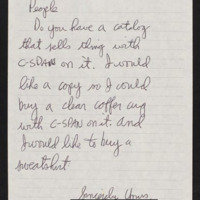 People
Do you have a catalog
that sells thing with
C-SPAN on it. I would
like a copy so I could
buy a clear coffer cug
with C-SPAN on it. and
I would like to buy a
sweatshirt.
Sincerely Yours